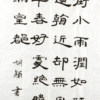 街小雨潤如
遥看近却無
年春好處絕勝
滿皇都
書